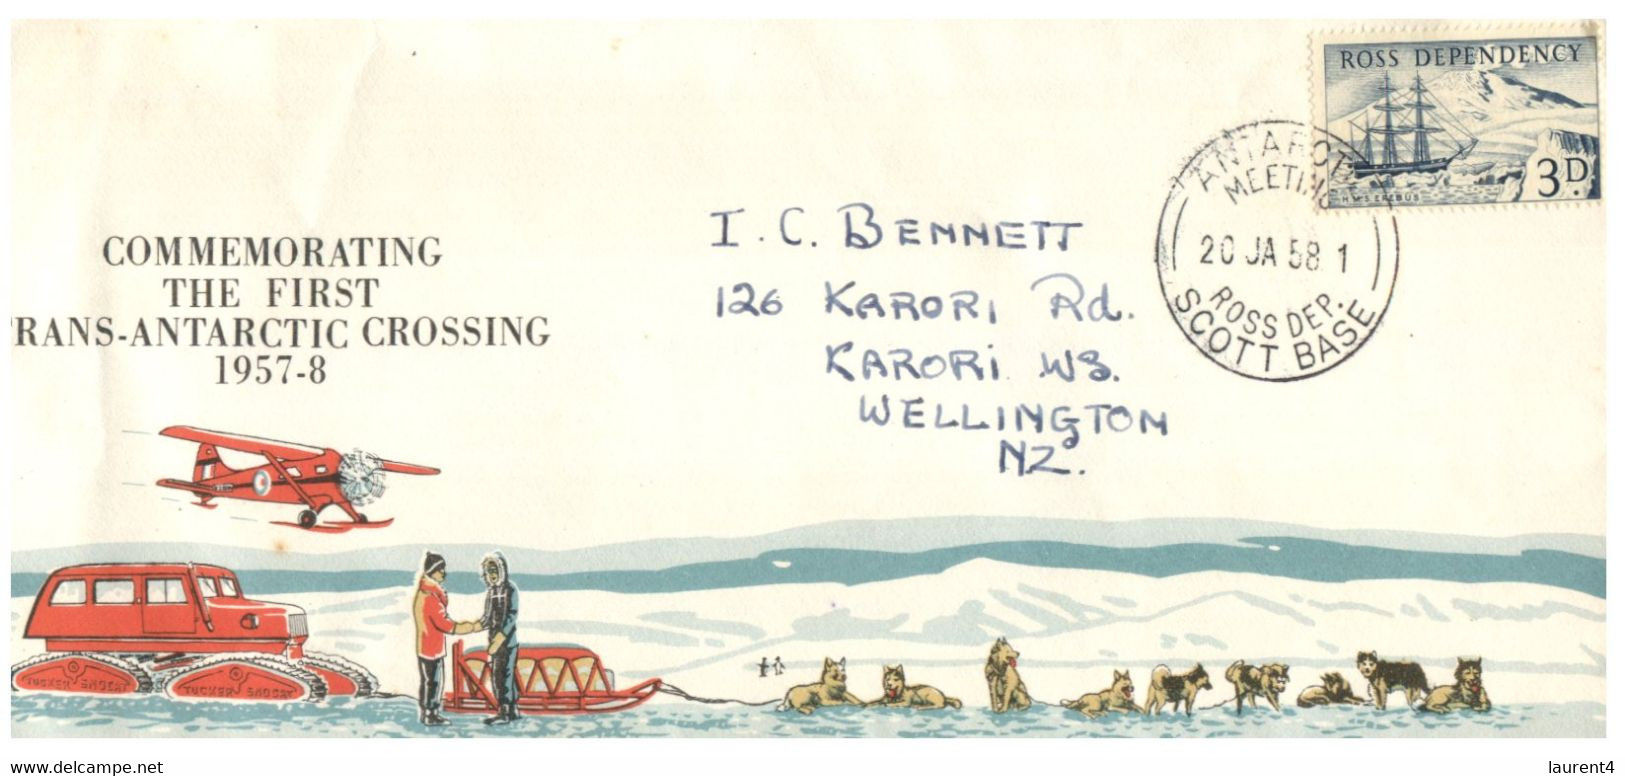 ROSS DEPENDENCY
3D.
H.M.S. EREBUS
MEETING
20 JA 58 1
ROSS DEP.
SCOTT BASE
I. C. BENNETT
126 KARORI Rd.
KARORI W3.
WELLINGTON
NZ.
COMMEMORATING
THE FIRST
RANS-ANTARCTIC CROSSING
1957-8
TUCKER SNOCAT
TUCKER SNOCAT
www.delcampe.net
laurent4